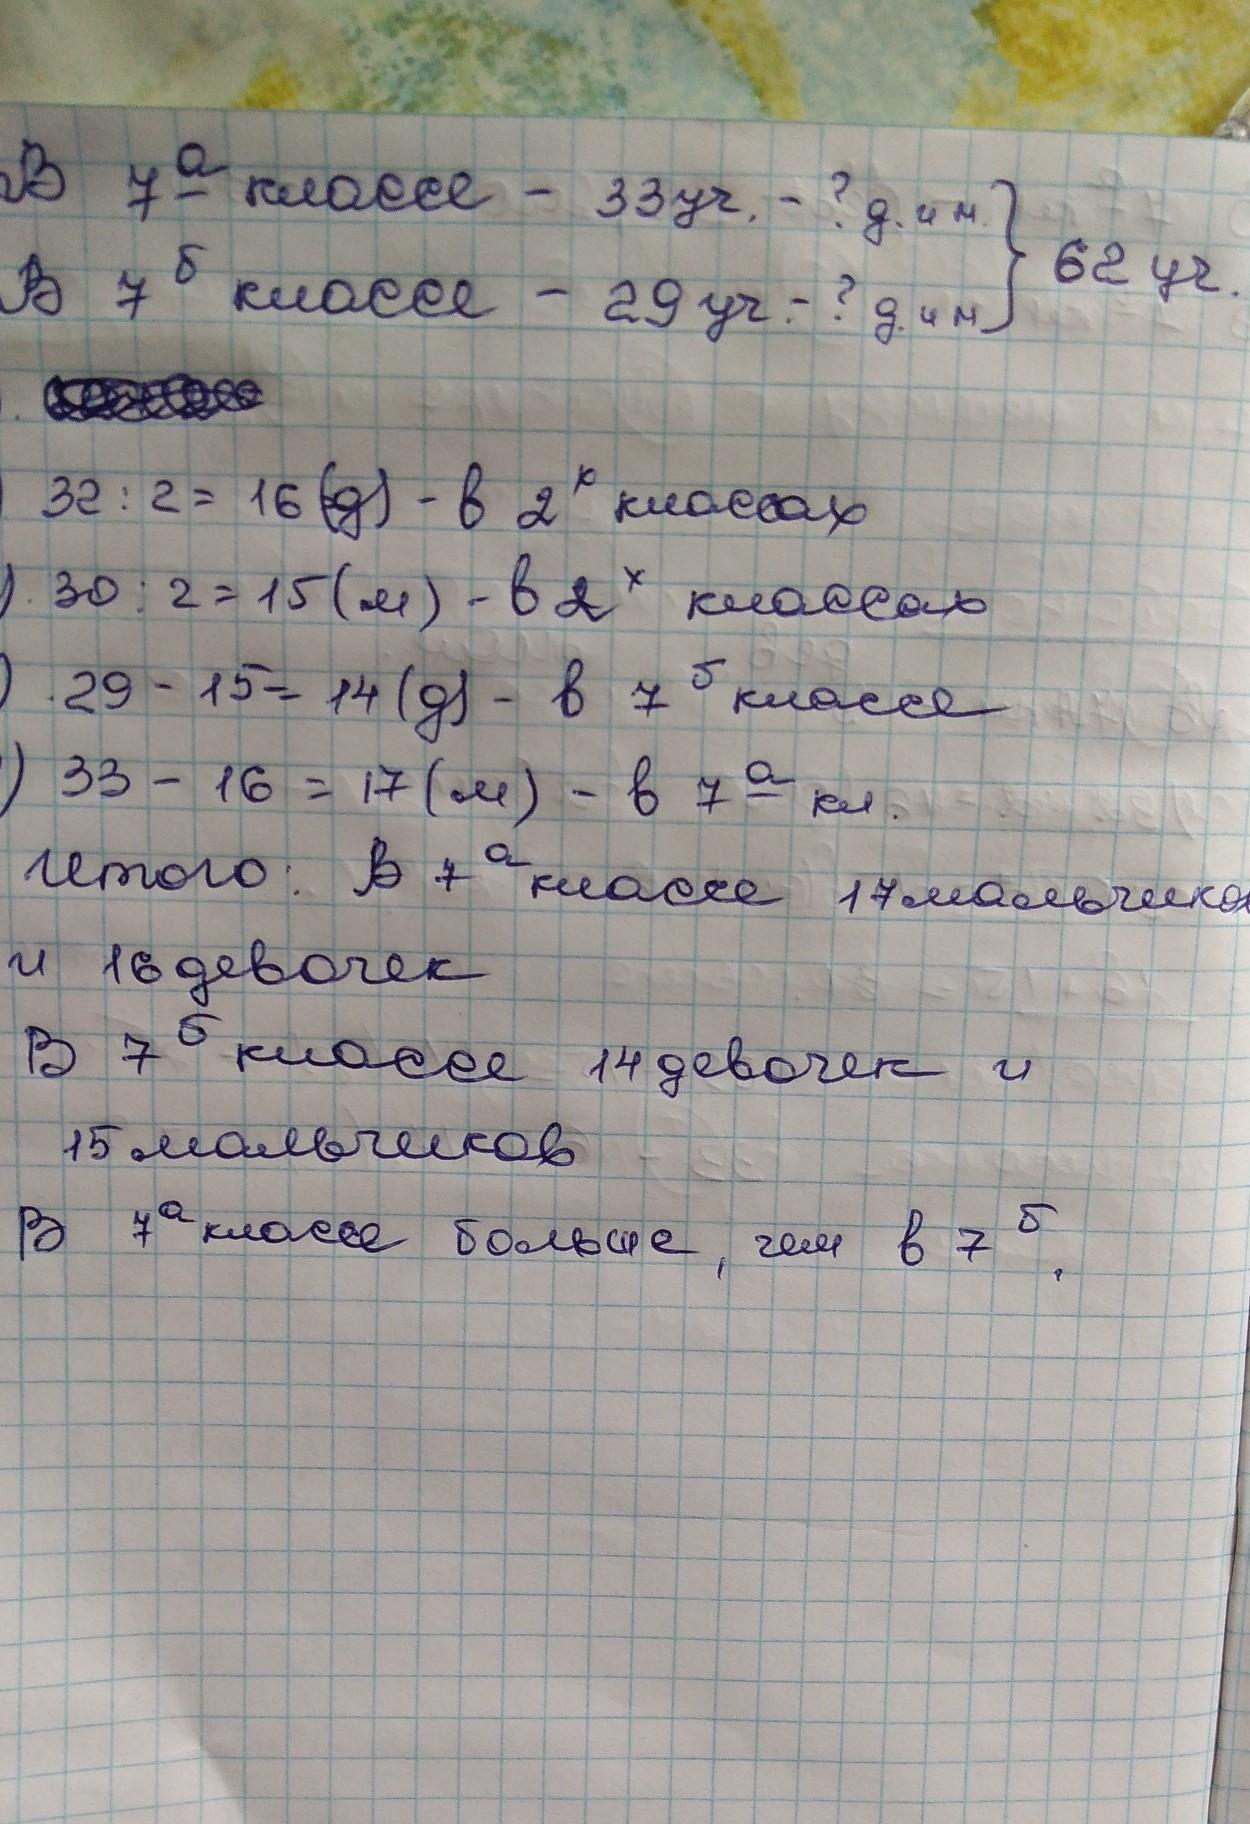 В 7а классе - 33 уч. - ? д. и м. } 62 уч.
В 7б классе - 29 уч. - ? д. и м
) 32 : 2 = 16 (д) - в 2х классах
). 30 : 2 = 15 (м) - в 2х классах
) . 29 - 15 = 14 (д) - в 7б классе
) 33 - 16 = 17 (м) - в 7а кл.
Итого: В 7а классе 17 мальчиков
и 16 девочек
В 7б классе 14 девочек и
15 мальчиков
В 7а классе больше, чем в 7б.